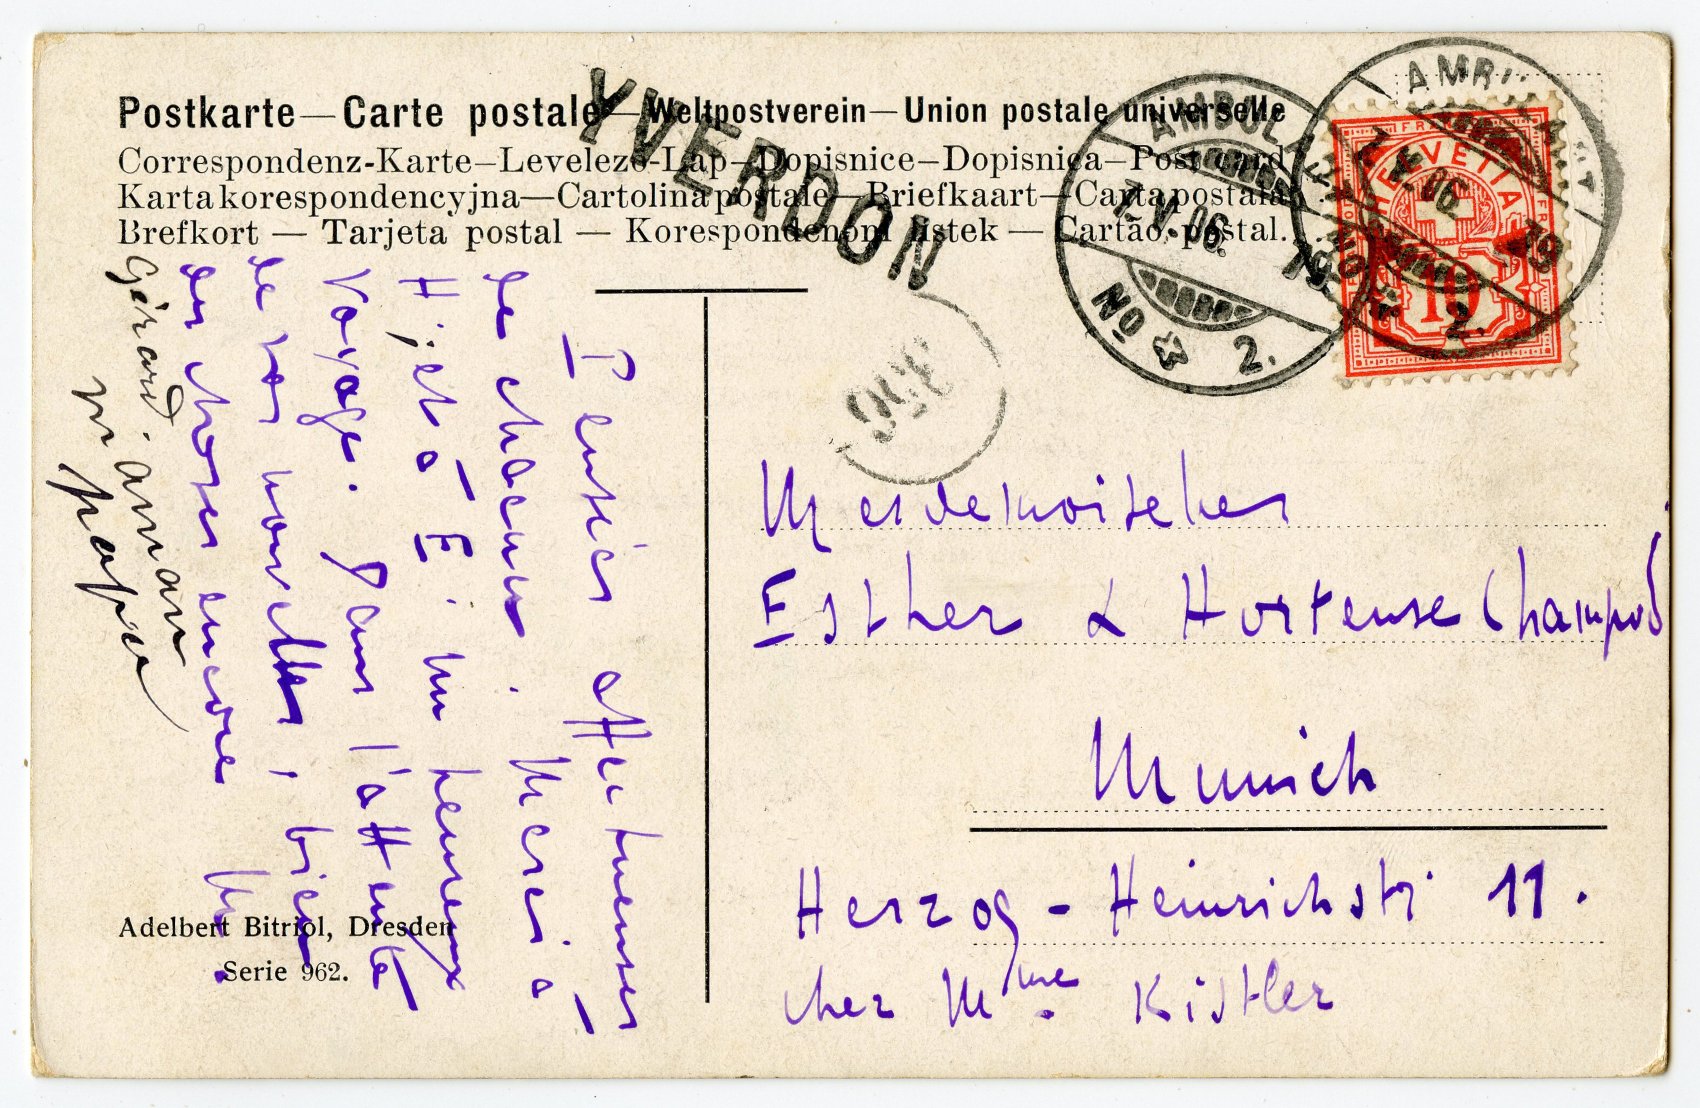 Postkarte—Carte postale—Weltpostverein—Union postale universelle
Correspondenz-Karte—Levelező-Lap—Dopisnice—Dopisnica—Post card
Karta korespondencyjna—Cartolina postale—Briefkaart—Carta postala
Brefkort — Tarjeta postal — Korespondenčni listek — Cartão postal.
YVERDON
AMBULANT
1.V.06.
19
No 2.
AMBULANT
1.V.06.
19
2.
HELVETIA
FRANCO
10
396
Pensées affectueuses
de chacun. Merci à
H. et à E. un heureux
voyage. Dans l'attente
de vos nouvelles, bien
des choses encore M.
Gérard. aman
papa
Mesdemoiselles
Esther & Hortense Champod
Munich
Herzog-Heinrichstr 11.
chez Mme. Kistler
Adelbert Bitriol, Dresden
Serie 962.